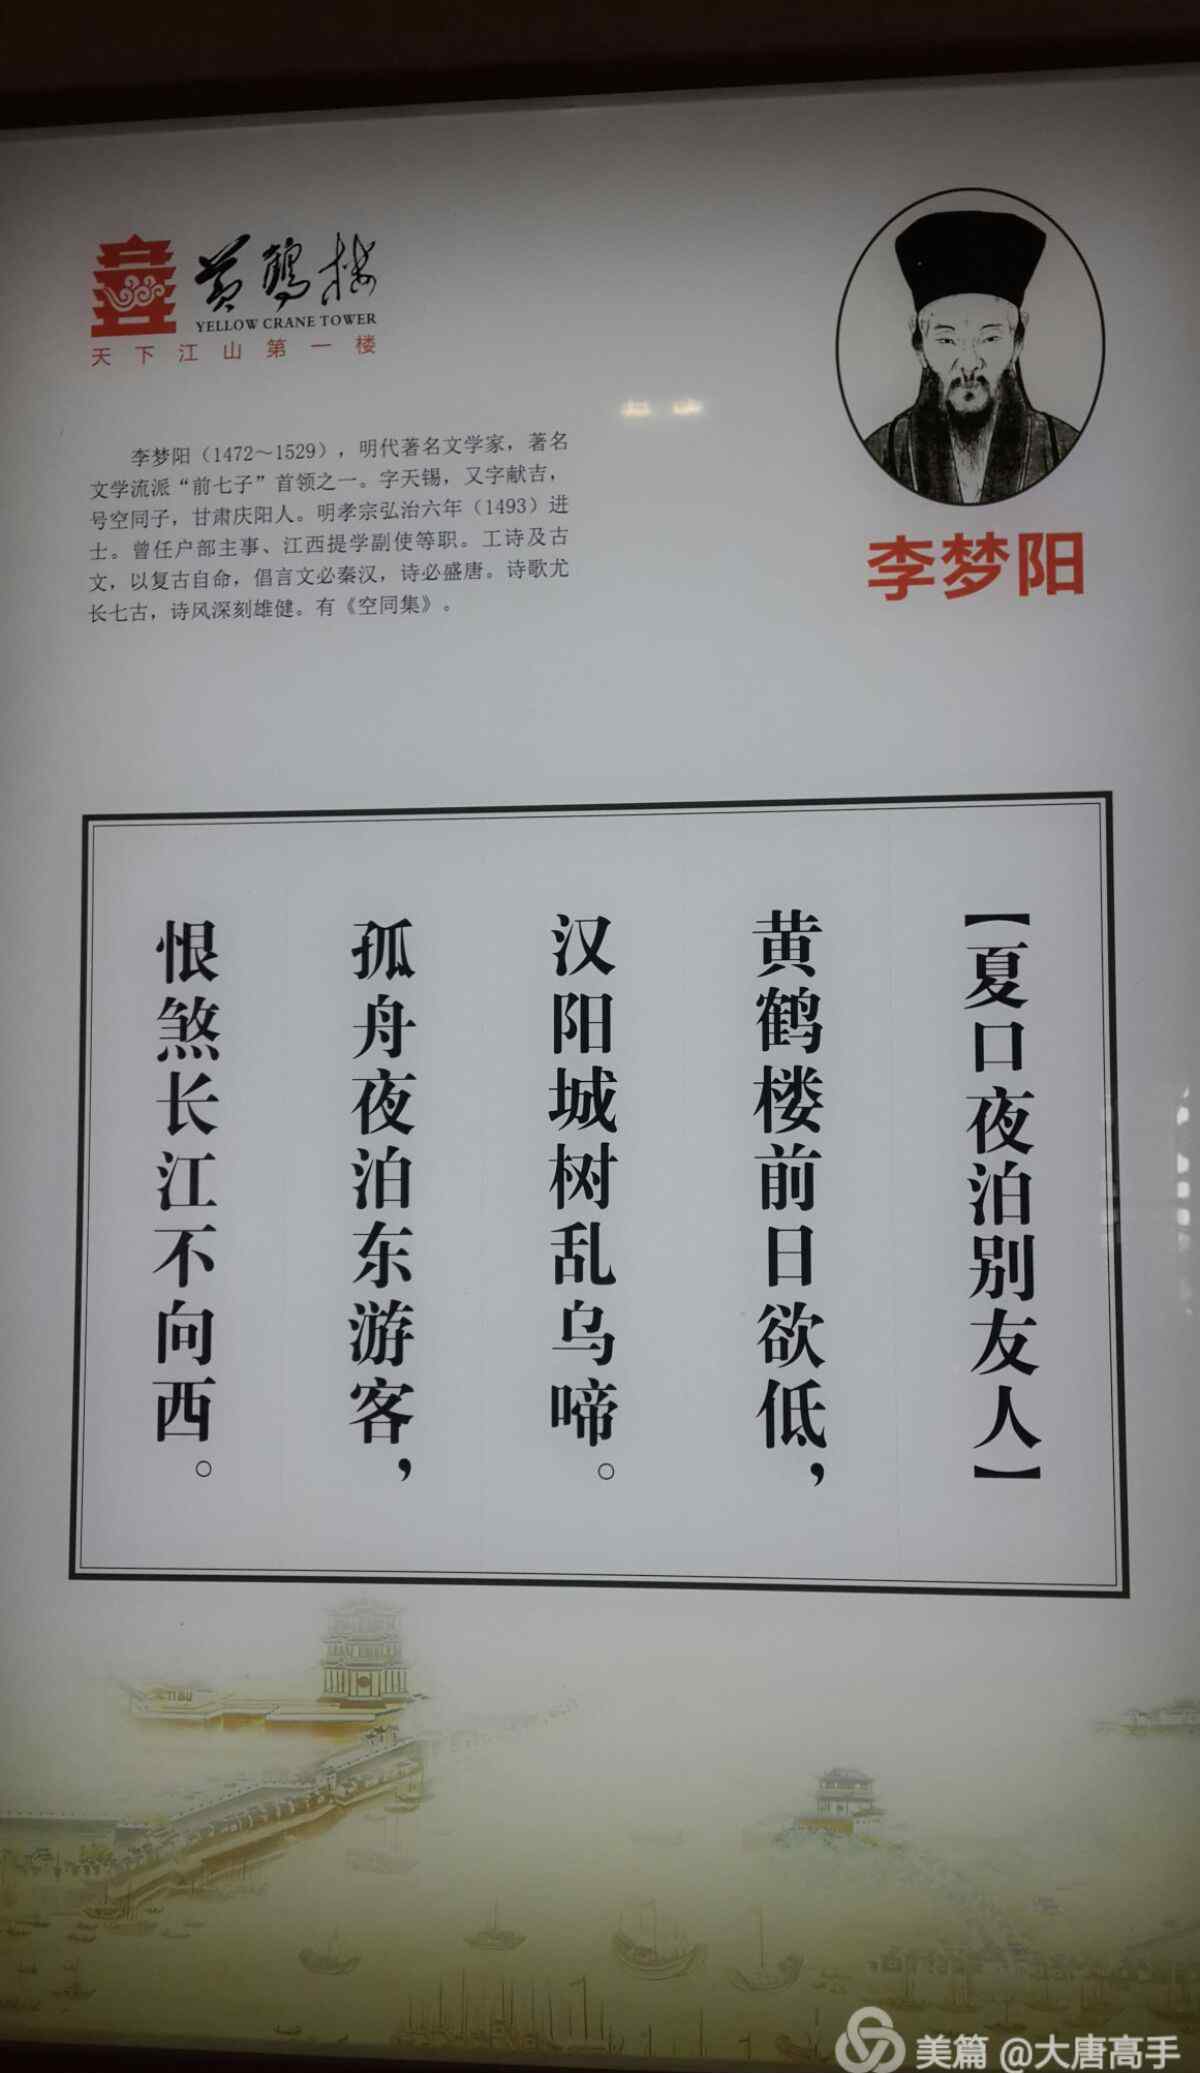 黄鹤楼
YELLOW CRANE TOWER
天下江山第一楼
李梦阳（1472～1529），明代著名文学家，著名
文学流派“前七子”首领之一。字天锡，又字献吉，
号空同子，甘肃庆阳人。明孝宗弘治六年（1493）进
士。曾任户部主事、江西提学副使等职。工诗及古
文，以复古自命，倡言文必秦汉，诗必盛唐。诗歌尤
长七古，诗风深刻雄健。有《空同集》。
李梦阳
【夏口夜泊别友人】
黄鹤楼前日欲低，
汉阳城树乱乌啼。
孤舟夜泊东游客，
恨煞长江不向西。
美篇 @大唐高手